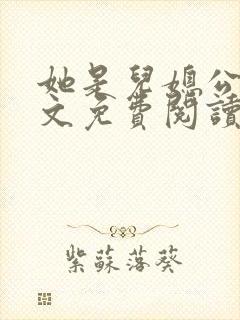 她是兒媳公
文免費閱讀
紫蘇落葵